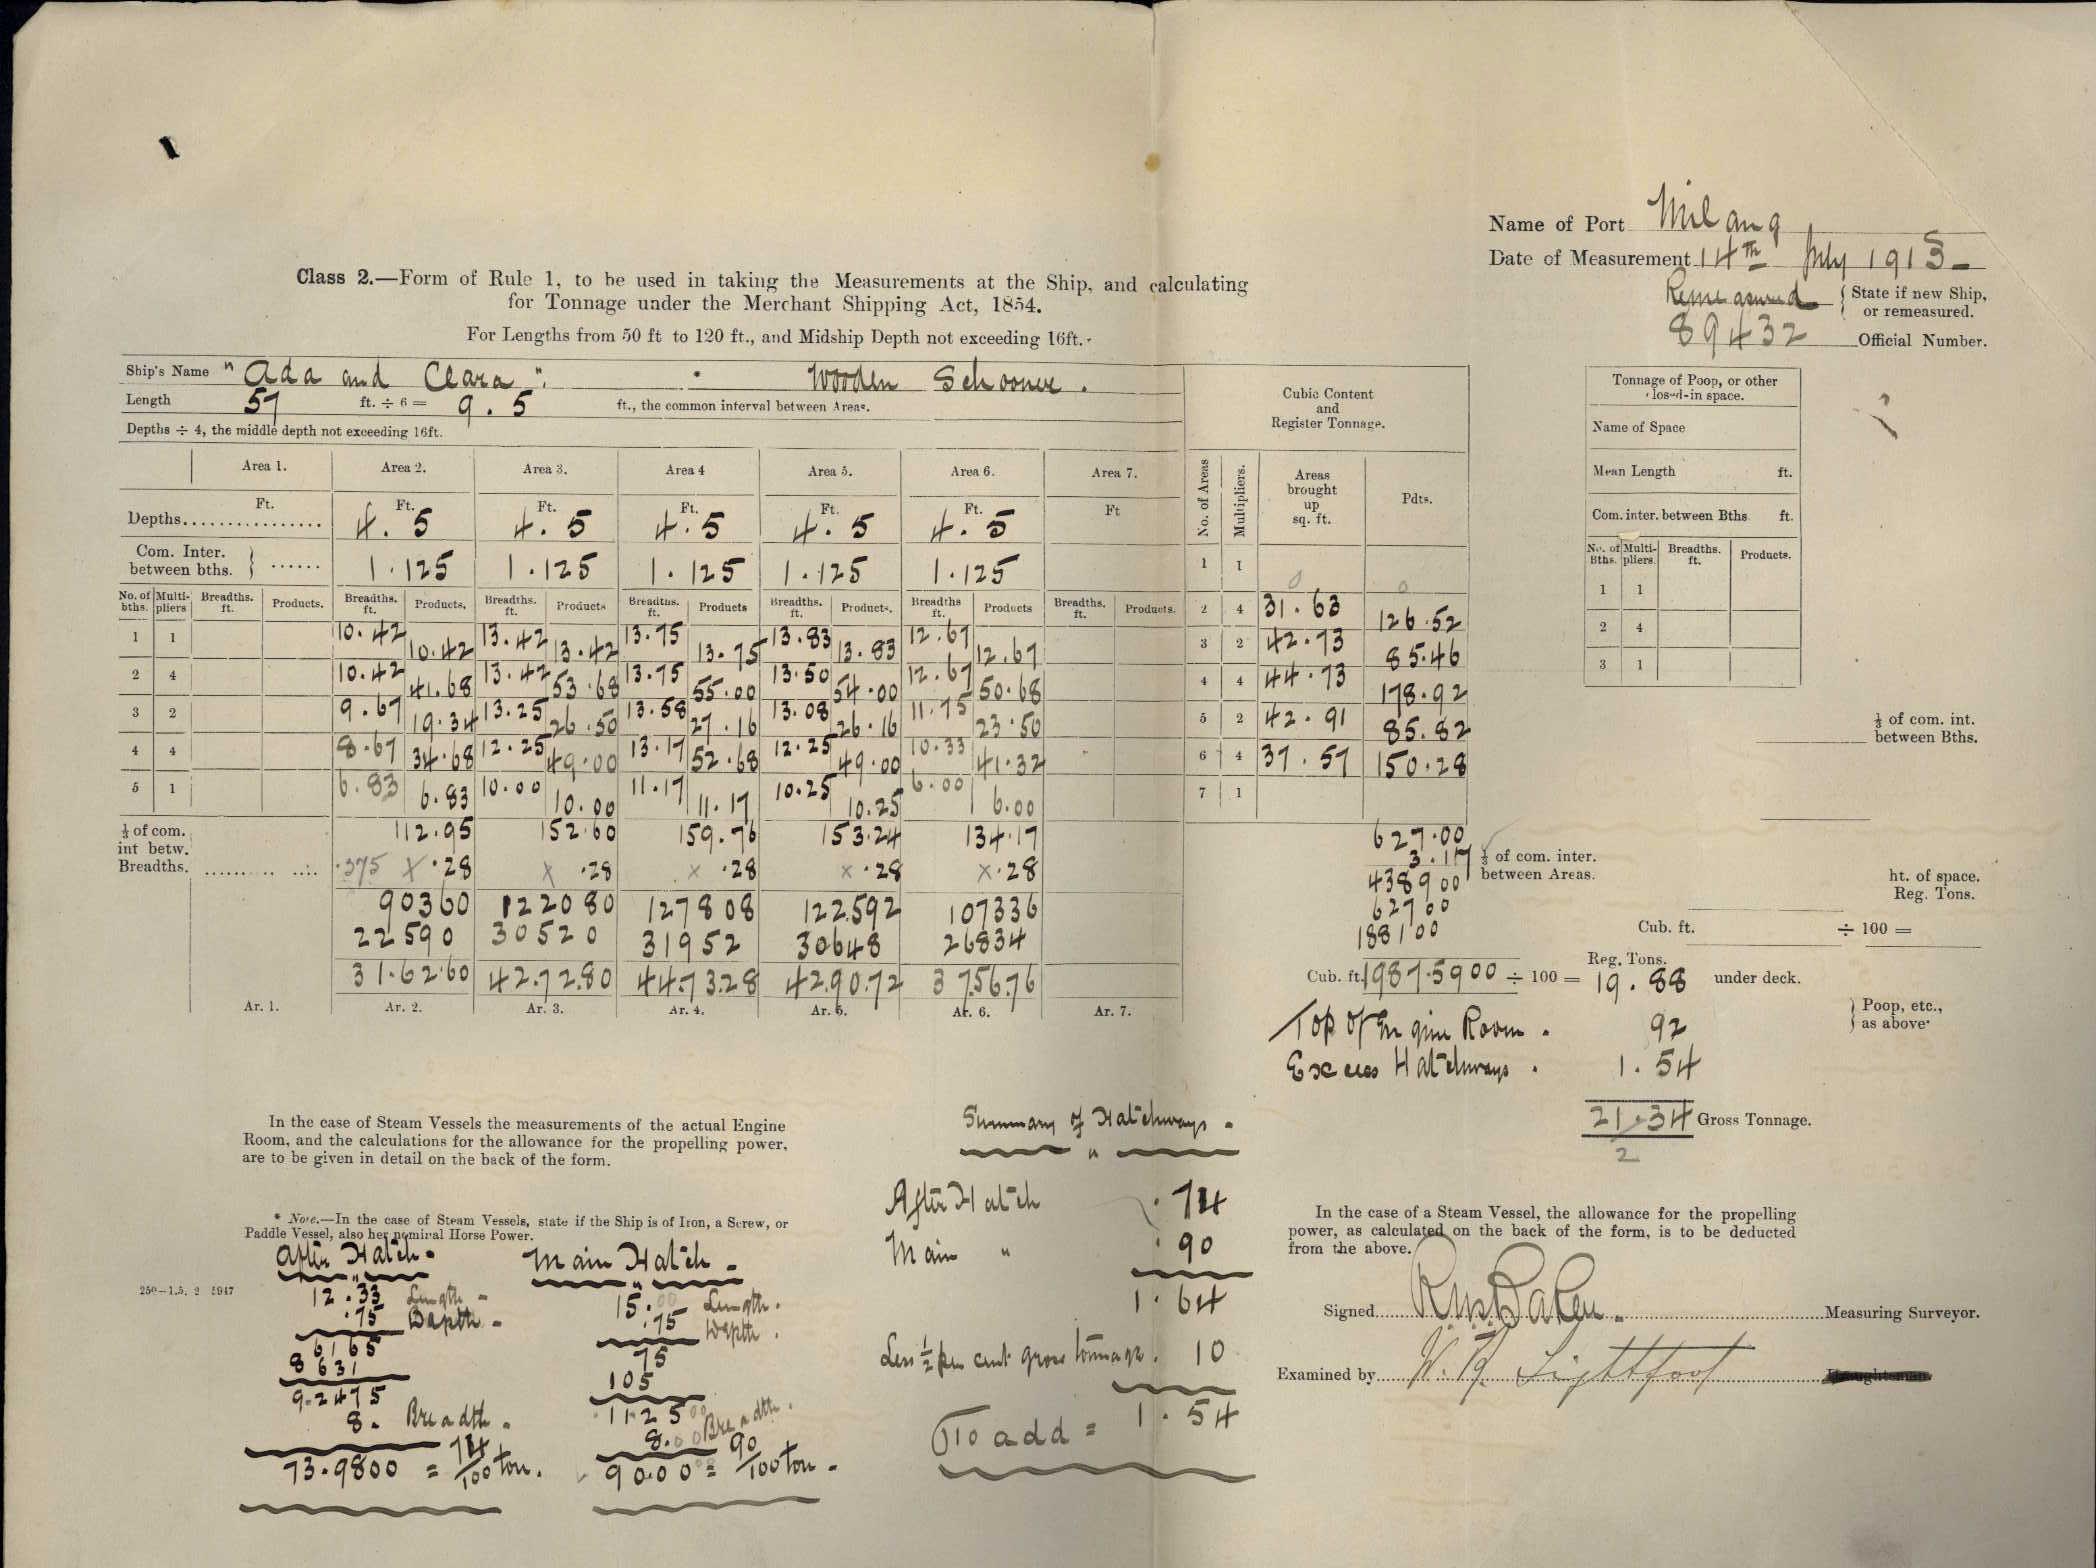 Name of Port Milang
Date of Measurement 14th July 1913
Remeasured } State if new Ship, or remeasured.
89432 Official Number.
Class 2.—Form of Rule 1, to be used in taking the Measurements at the Ship, and calculating
for Tonnage under the Merchant Shipping Act, 1854.
For Lengths from 50 ft to 120 ft., and Midship Depth not exceeding 16ft.
Ship's Name "Ada and Clara". Wooden Schooner.
Length 57 ft. ÷ 6 = 9.5 ft., the common interval between Areas.
Depths ÷ 4, the middle depth not exceeding 16ft.
Area 1. Area 2. Area 3. Area 4 Area 5. Area 6. Area 7.
Ft. Ft. Ft. Ft. Ft. Ft. Ft
Depths 4.5 4.5 4.5 4.5 4.5
Com. Inter. between bths. } 1.125 1.125 1.125 1.125 1.125
No. of bths. Multipliers Breadths. ft. Products. Breadths. ft. Products. Breadths. ft. Products Breadths. ft. Products Breadths. ft. Products. Breadths ft. Products Breadths. ft. Products.
1 1 10.42 10.42 13.42 13.42 13.75 13.75 13.83 13.83 12.67 12.67
2 4 10.42 41.68 13.42 53.68 13.75 55.00 13.50 54.00 12.67 50.68
3 2 9.67 19.34 13.25 26.50 13.58 27.16 13.08 26.16 11.75 23.50
4 4 8.67 34.68 12.25 49.00 13.17 52.68 12.25 49.00 10.33 41.32
5 1 6.83 6.83 10.00 10.00 11.17 11.17 10.25 10.25 6.00 6.00
112.95 152.60 159.76 153.24 134.17
⅓ of com. int betw. Breadths. .375 x .28 x .28 x .28 x .28 x .28
90360 122080 127808 122592 107336
22590 30520 31952 30648 26834
31.6260 42.7280 44.7328 42.9072 37.5676
Ar. 1. Ar. 2. Ar. 3. Ar. 4. Ar. 5. Ar. 6. Ar. 7.
Cubic Content
and
Register Tonnage.
No. of Areas Multipliers. Areas brought up sq. ft. Pdts.
1 1 0 0
2 4 31.63 126.52
3 2 42.73 85.46
4 4 44.73 178.92
5 2 42.91 85.82
6 4 37.57 150.28
7 1
627.00
3.17 ⅓ of com. inter. between Areas.
438900
62700
188100
Cub. ft. 1987.5900 ÷ 100 = Reg. Tons. 19.88 under deck.
Top of Engine Room. 92
Excess Hatchways. 1.54
21.34 Gross Tonnage.
2
Tonnage of Poop, or other
closed-in space.
Name of Space
Mean Length ft.
Com. inter. between Bths ft.
No. of Bths. Multipliers. Breadths. ft. Products.
1 1
2 4
3 1
⅓ of com. int.
between Bths.
ht. of space.
Reg. Tons.
Cub. ft. ÷ 100 =
} Poop, etc., as above
In the case of Steam Vessels the measurements of the actual Engine
Room, and the calculations for the allowance for the propelling power,
are to be given in detail on the back of the form.
* Note.—In the case of Steam Vessels, state if the Ship is of Iron, a Screw, or
Paddle Vessel, also her nominal Horse Power.
After Hatch
12.33 Length
.75 Depth
6165
8631
9.2475
8. Breadth.
73.9800 = 74/100 ton.
Main Hatch
15.00 Length.
.75 Depth.
75
105
11.2500
8.00 Breadth.
90.00 = 90/100 ton
Summary of Hatchways
After Hatch .74
Main " .90
1.64
Less ½ per cent gross tonnage. 10
To add = 1.54
In the case of a Steam Vessel, the allowance for the propelling
power, as calculated on the back of the form, is to be deducted
from the above.
Signed Baker. Measuring Surveyor.
Examined by W. Lightfoot